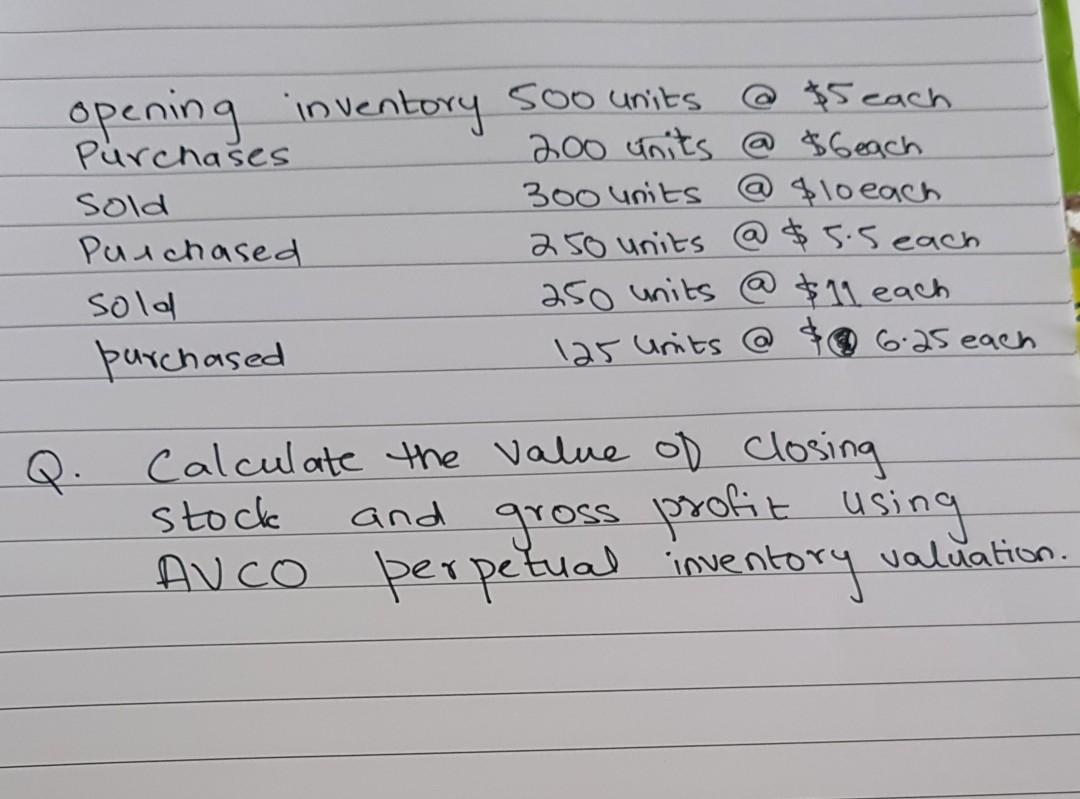 opening inventory 500 units @ $5 each
Purchases 200 units @ $6 each
Sold 300 units @ $10 each
Purchased 250 units @ $ 5.5 each
Sold 250 units @ $11 each
purchased 125 units @ $ 6.25 each
Q. Calculate the value of closing
stock and gross profit using
AVCO perpetual inventory valuation.